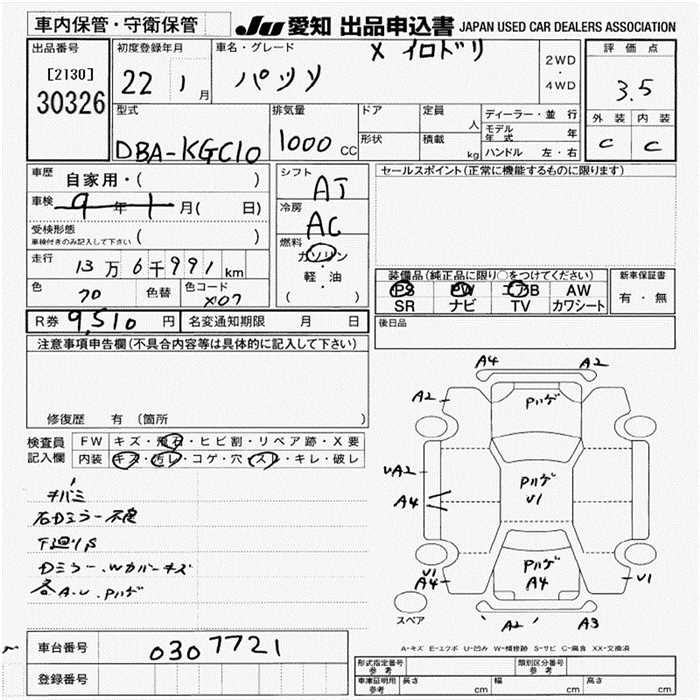 車内保管・守衛保管
JU 愛知 出品申込書 JAPAN USED CAR DEALERS ASSOCIATION
出品番号
[2130]
30326
初度登録年月
22 1月
車名・グレード
パッソ
X イロドリ
2WD
・
4WD
評価点
3.5
外装 内装
C C
型式
DBA-KGC10
排気量
1000 CC
ドア
形状
定員 人
積載 kg
ディーラー・並行
モデル年式 年
ハンドル 左・右
車歴 自家用・( )
車検 9年1月( 日)
受検形態
車検付きのみ記入して下さい ( )
走行 13万6千991km
色 70 色替 色コード X07
シフト
AT
冷房
AC
燃料
ガソリン
・
軽・油
( )
セールスポイント(正常に機能するものに限ります)
装備品(純正品に限り○をつけてください)
PS PW エアB AW
SR ナビ TV カワシート
新車保証書
有・無
R券 9,510円 名変通知期限 月 日
後日品
注意事項申告欄(不具合内容等は具体的に記入して下さい)
修復歴 有(箇所 )
検査員
記入欄
FW キズ・飛石・ヒビ割・リペア跡・X要
内装 キズ・汚レ・コゲ・穴・スレ・キレ・破レ
チバミ
右Dミラー不良
下廻りS
Dミラー、Wカバーキズ
各A.U.Pハゲ
A4 A2
A2 Pハゲ
UA2 Pハゲ
A4 U1
U1 Pハゲ U1
A4 A4
スペア A2 A3
A-キズ E-エクボ U-凹み W-補修跡 S-サビ C-腐食 XX-交換済
車台番号 0307721
登録番号
形式指定番号
参考
類別区分番号
参考
車庫証明用
参考
長さ cm 幅 cm 高さ cm